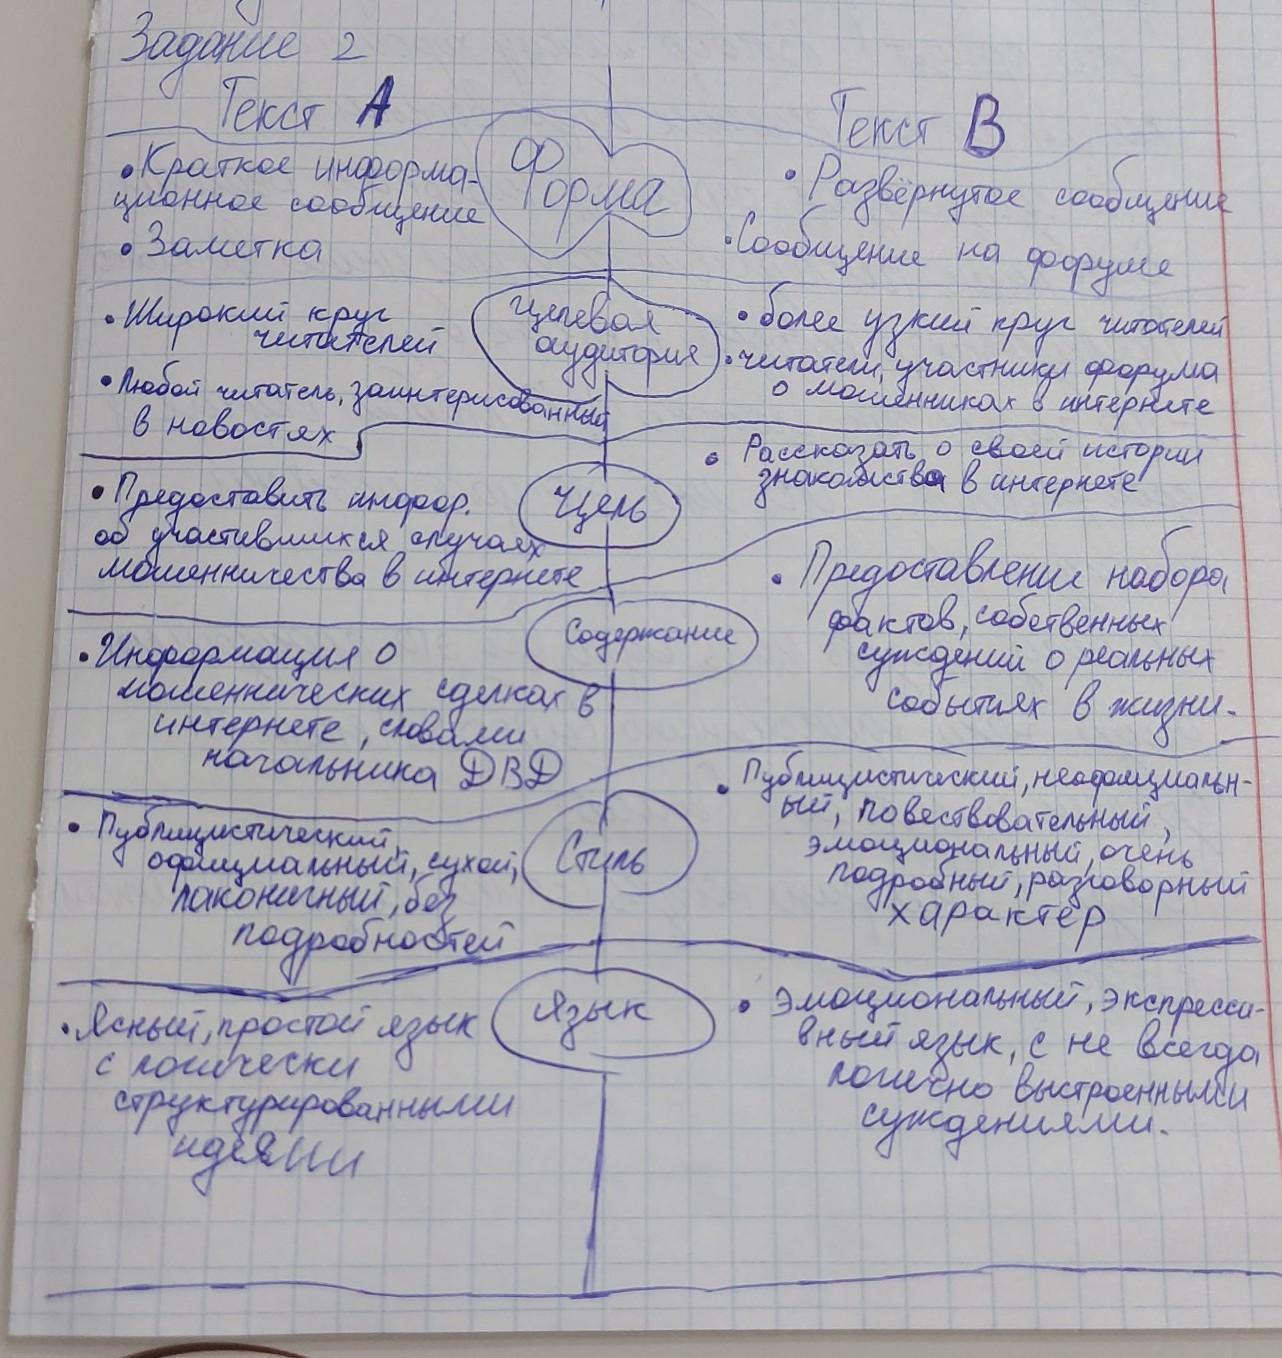 Задание 2
Текст А
Текст В
Форма
• Краткое информа-
ционное сообщение
• Заметка
• Развёрнутое сообщение
• Сообщение на форуме
Целевая
аудитория
• Широкий круг
читателей
• Любой читатель, заинтерисованный
в новостях
• более узкий круг читателей
• читатели, участники форума
о мошенниках в интернете
Цель
• Предоставить инфор.
об участившихся случаях
мошенничества в интернете
• Рассказать о своей истории
знакомства в интернете
Содержание
• Информация о
мошеннических сделках в
интернете, словами
начальника ДВД
• Предоставление набора
фактов, собственных
суждений о реальных
событиях в жизни.
Стиль
• Публицистический,
официальный, сухой,
лаконичный, без
подробностей
• Публицистический, неофициальн-
ый, повествовательный,
эмоциональный, очень
подробный, разговорный
характер
Язык
• Ясный, простой язык
с логически
структурированными
идеями
• Эмоциональный, экспресси-
вный язык, с не всегда
логично выстроенными
суждениями.